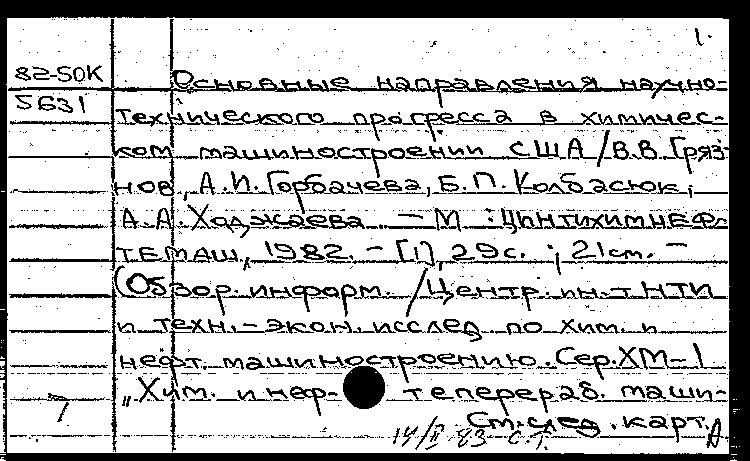 1.
82-50К
5631
Основные направления научно-
технического прогресса в химичес-
ком машиностроении США/В.В. Гряз-
нов, А.И. Горбачева, Б.П. Колбасюк,
А.А. Ходжаева. — М.: ЦИНТИХИМНЕФ-
ТЕМАШ, 1982. – [1], 29с. ; 21см. —
(Обзор. информ. /Центр. ин-т НТИ
и техн.-экон. исслед по хим. и
нефт. машиностроению. Сер. ХМ-1
„Хим. и неф- теперераб. маши-
7
См. след. карт.
14/II 83 С.Т.